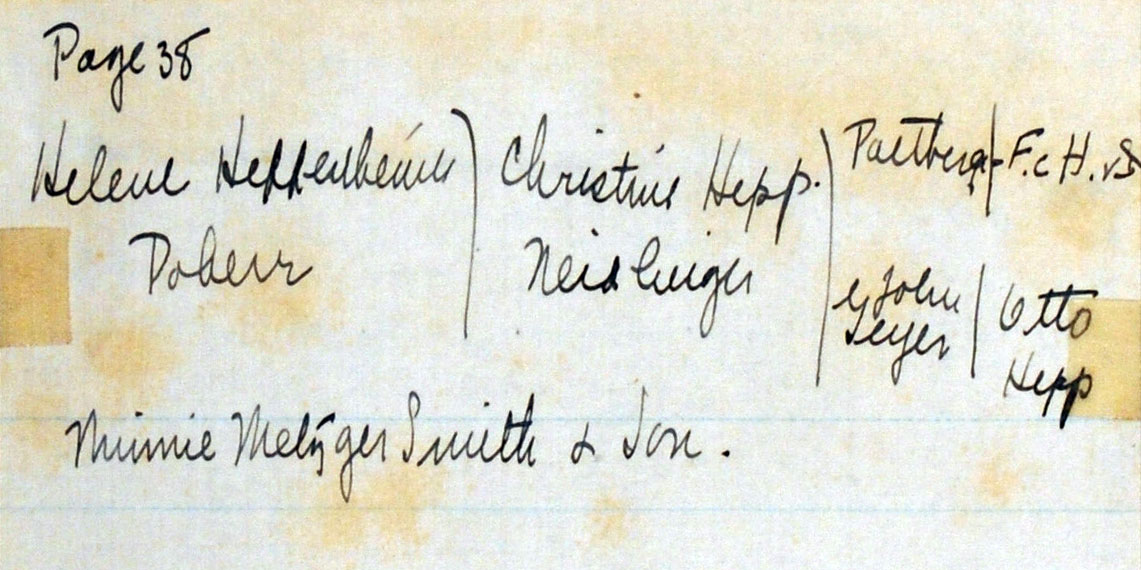 Page 38
Helene Heppenheimer ) Christine Hepp. ) Paltberg / F. c H. vS
Doherr Neidlinger John / Otto
Geyer Hepp
Minnie Metzger Smith & Son.